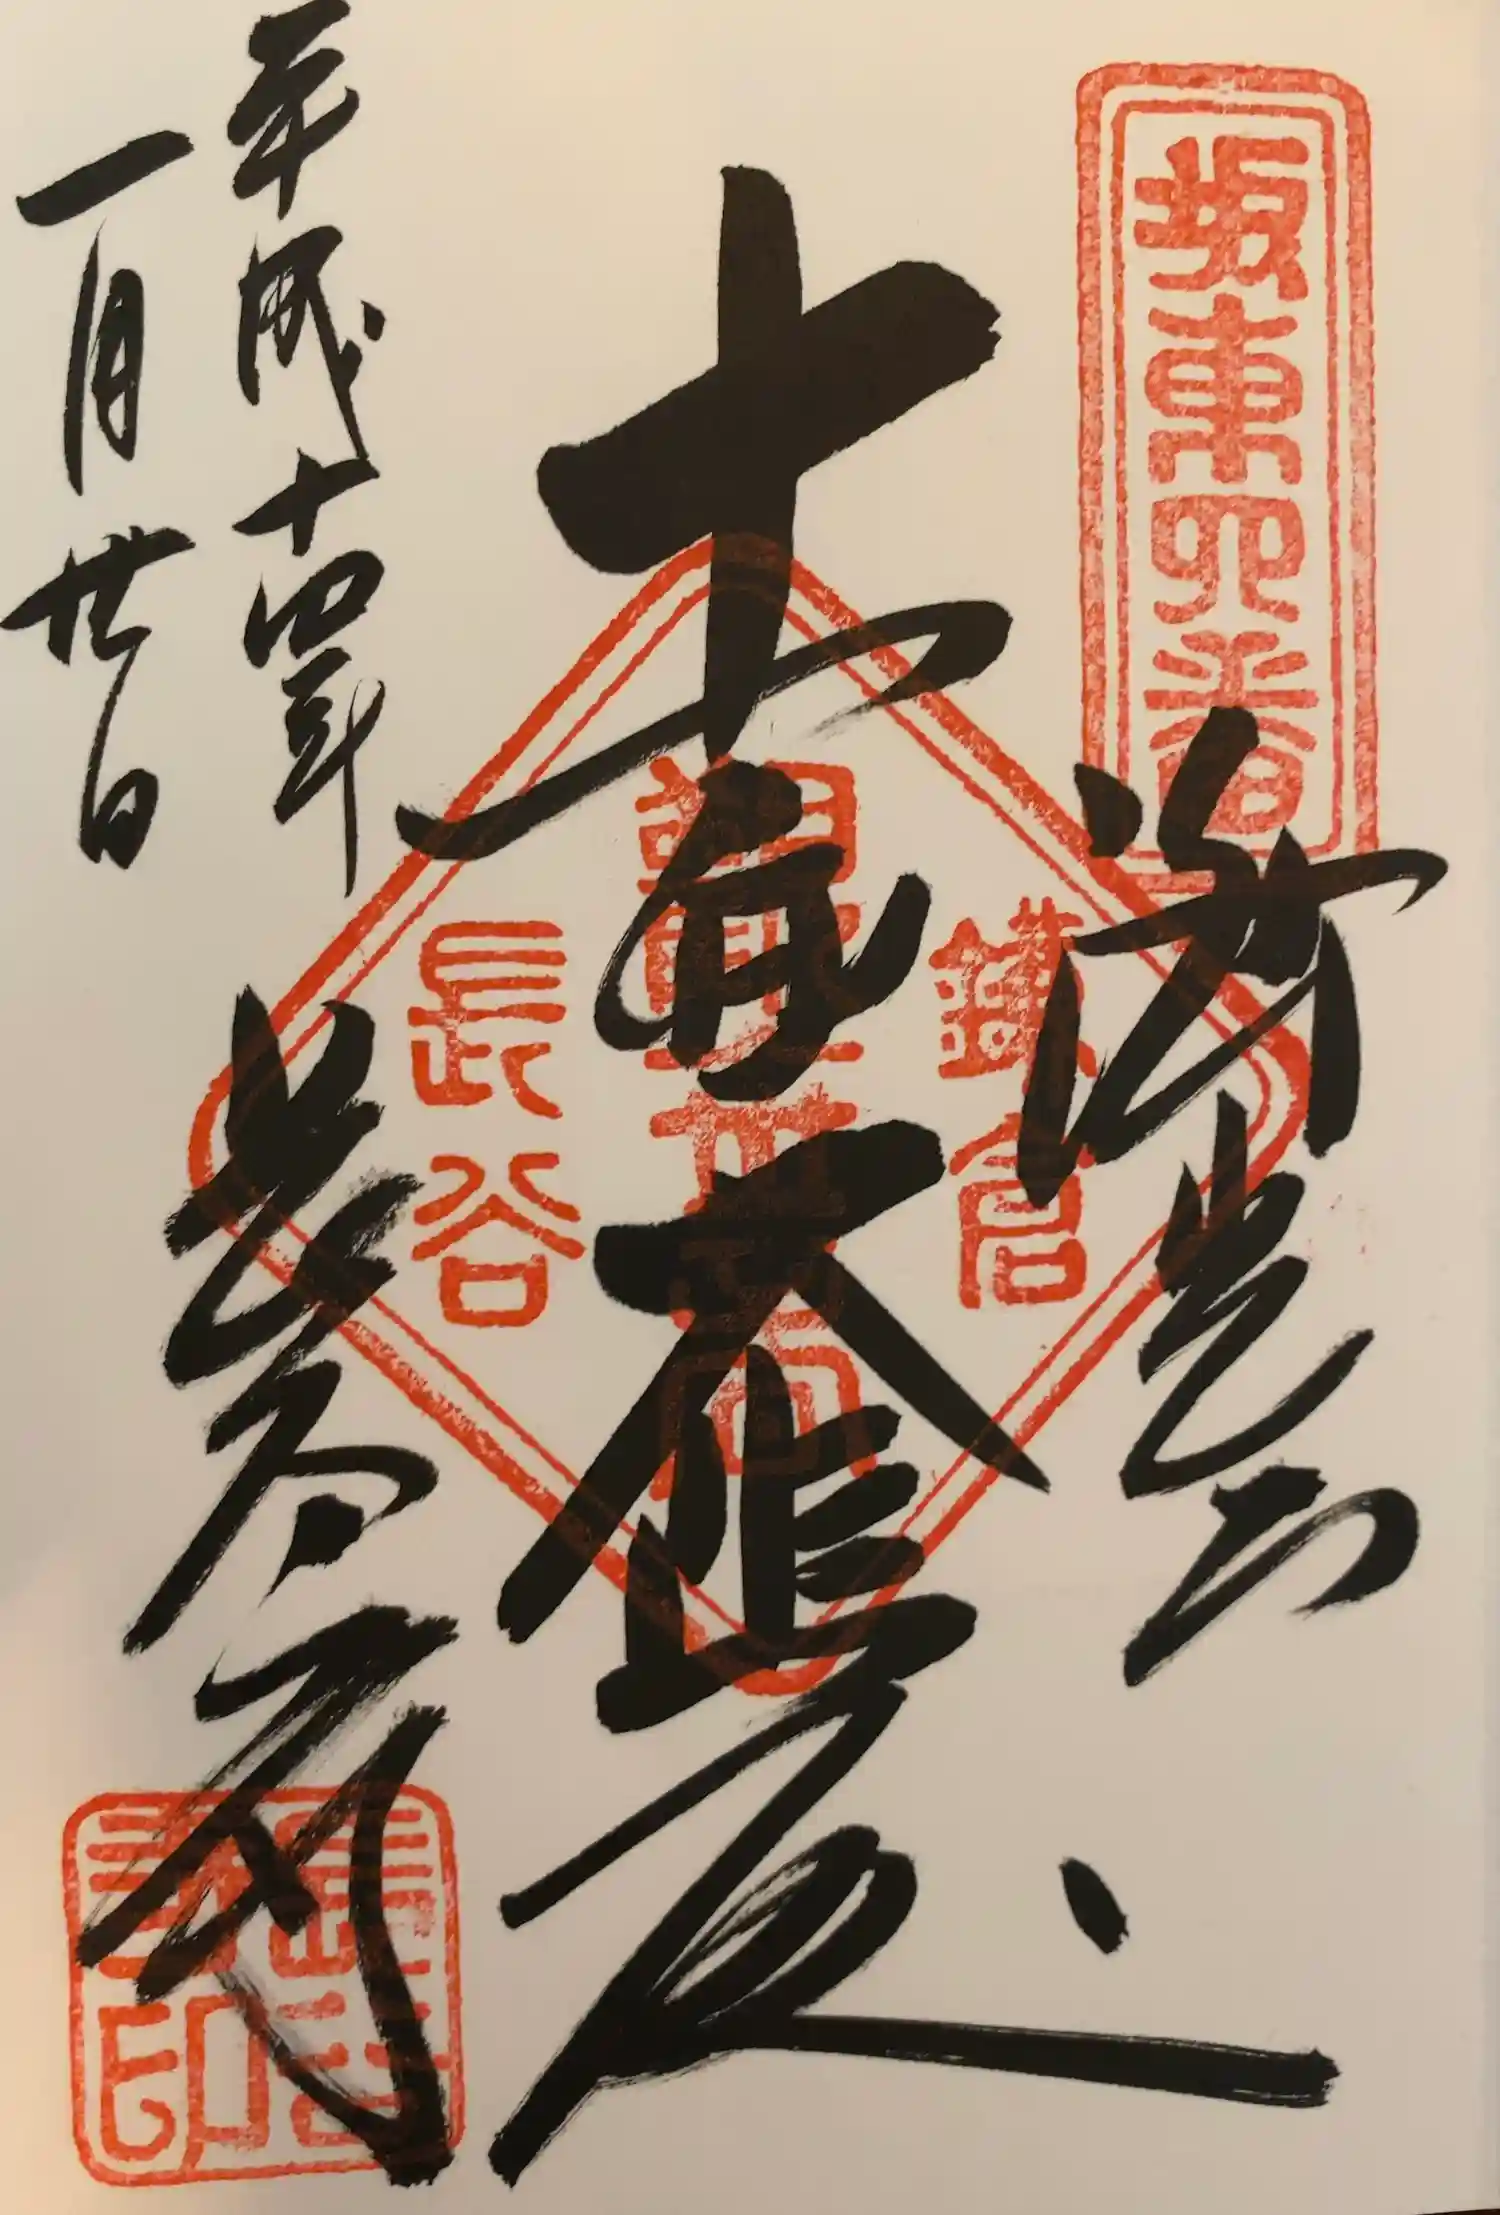 坂東四番
海光山
十一面
大悲殿
鎌倉
長谷
平成十四年
一月廿日
長谷寺